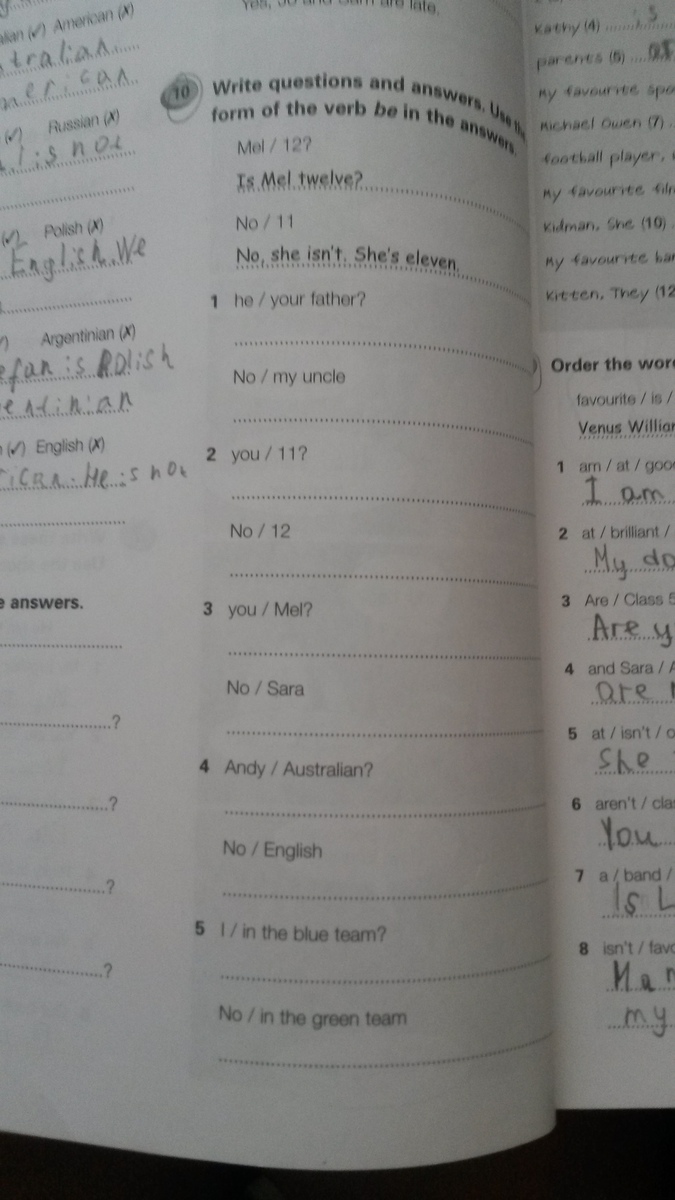 American (✗)
tralian
erican
Russian (✗)
is not
Polish (✗)
English. We
Argentinian (✗)
is Polish
entinian
English (✗)
He is not
answers.
?
?
?
?
are late.
10 Write questions and answers. Use the
form of the verb be in the answers.
Mel / 12?
Is Mel twelve?
No / 11
No, she isn't. She's eleven.
1 he / your father?
No / my uncle
2 you / 11?
No / 12
3 you / Mel?
No / Sara
4 Andy / Australian?
No / English
5 I / in the blue team?
No / in the green team
Kathy (4) s
parents (5)
My favourite
Michael Owen (7)
football player,
My favourite
Kidman. She (10)
My favourite
Kitten. They (12
Order the
favourite / is /
Venus
1 am / at /
I am
2 at / brilliant /
My
3 Are / Class
Are
4 and Sara /
are
5 at / isn't /
she
6 aren't /
You
7 a / band /
Is
8 isn't /
my